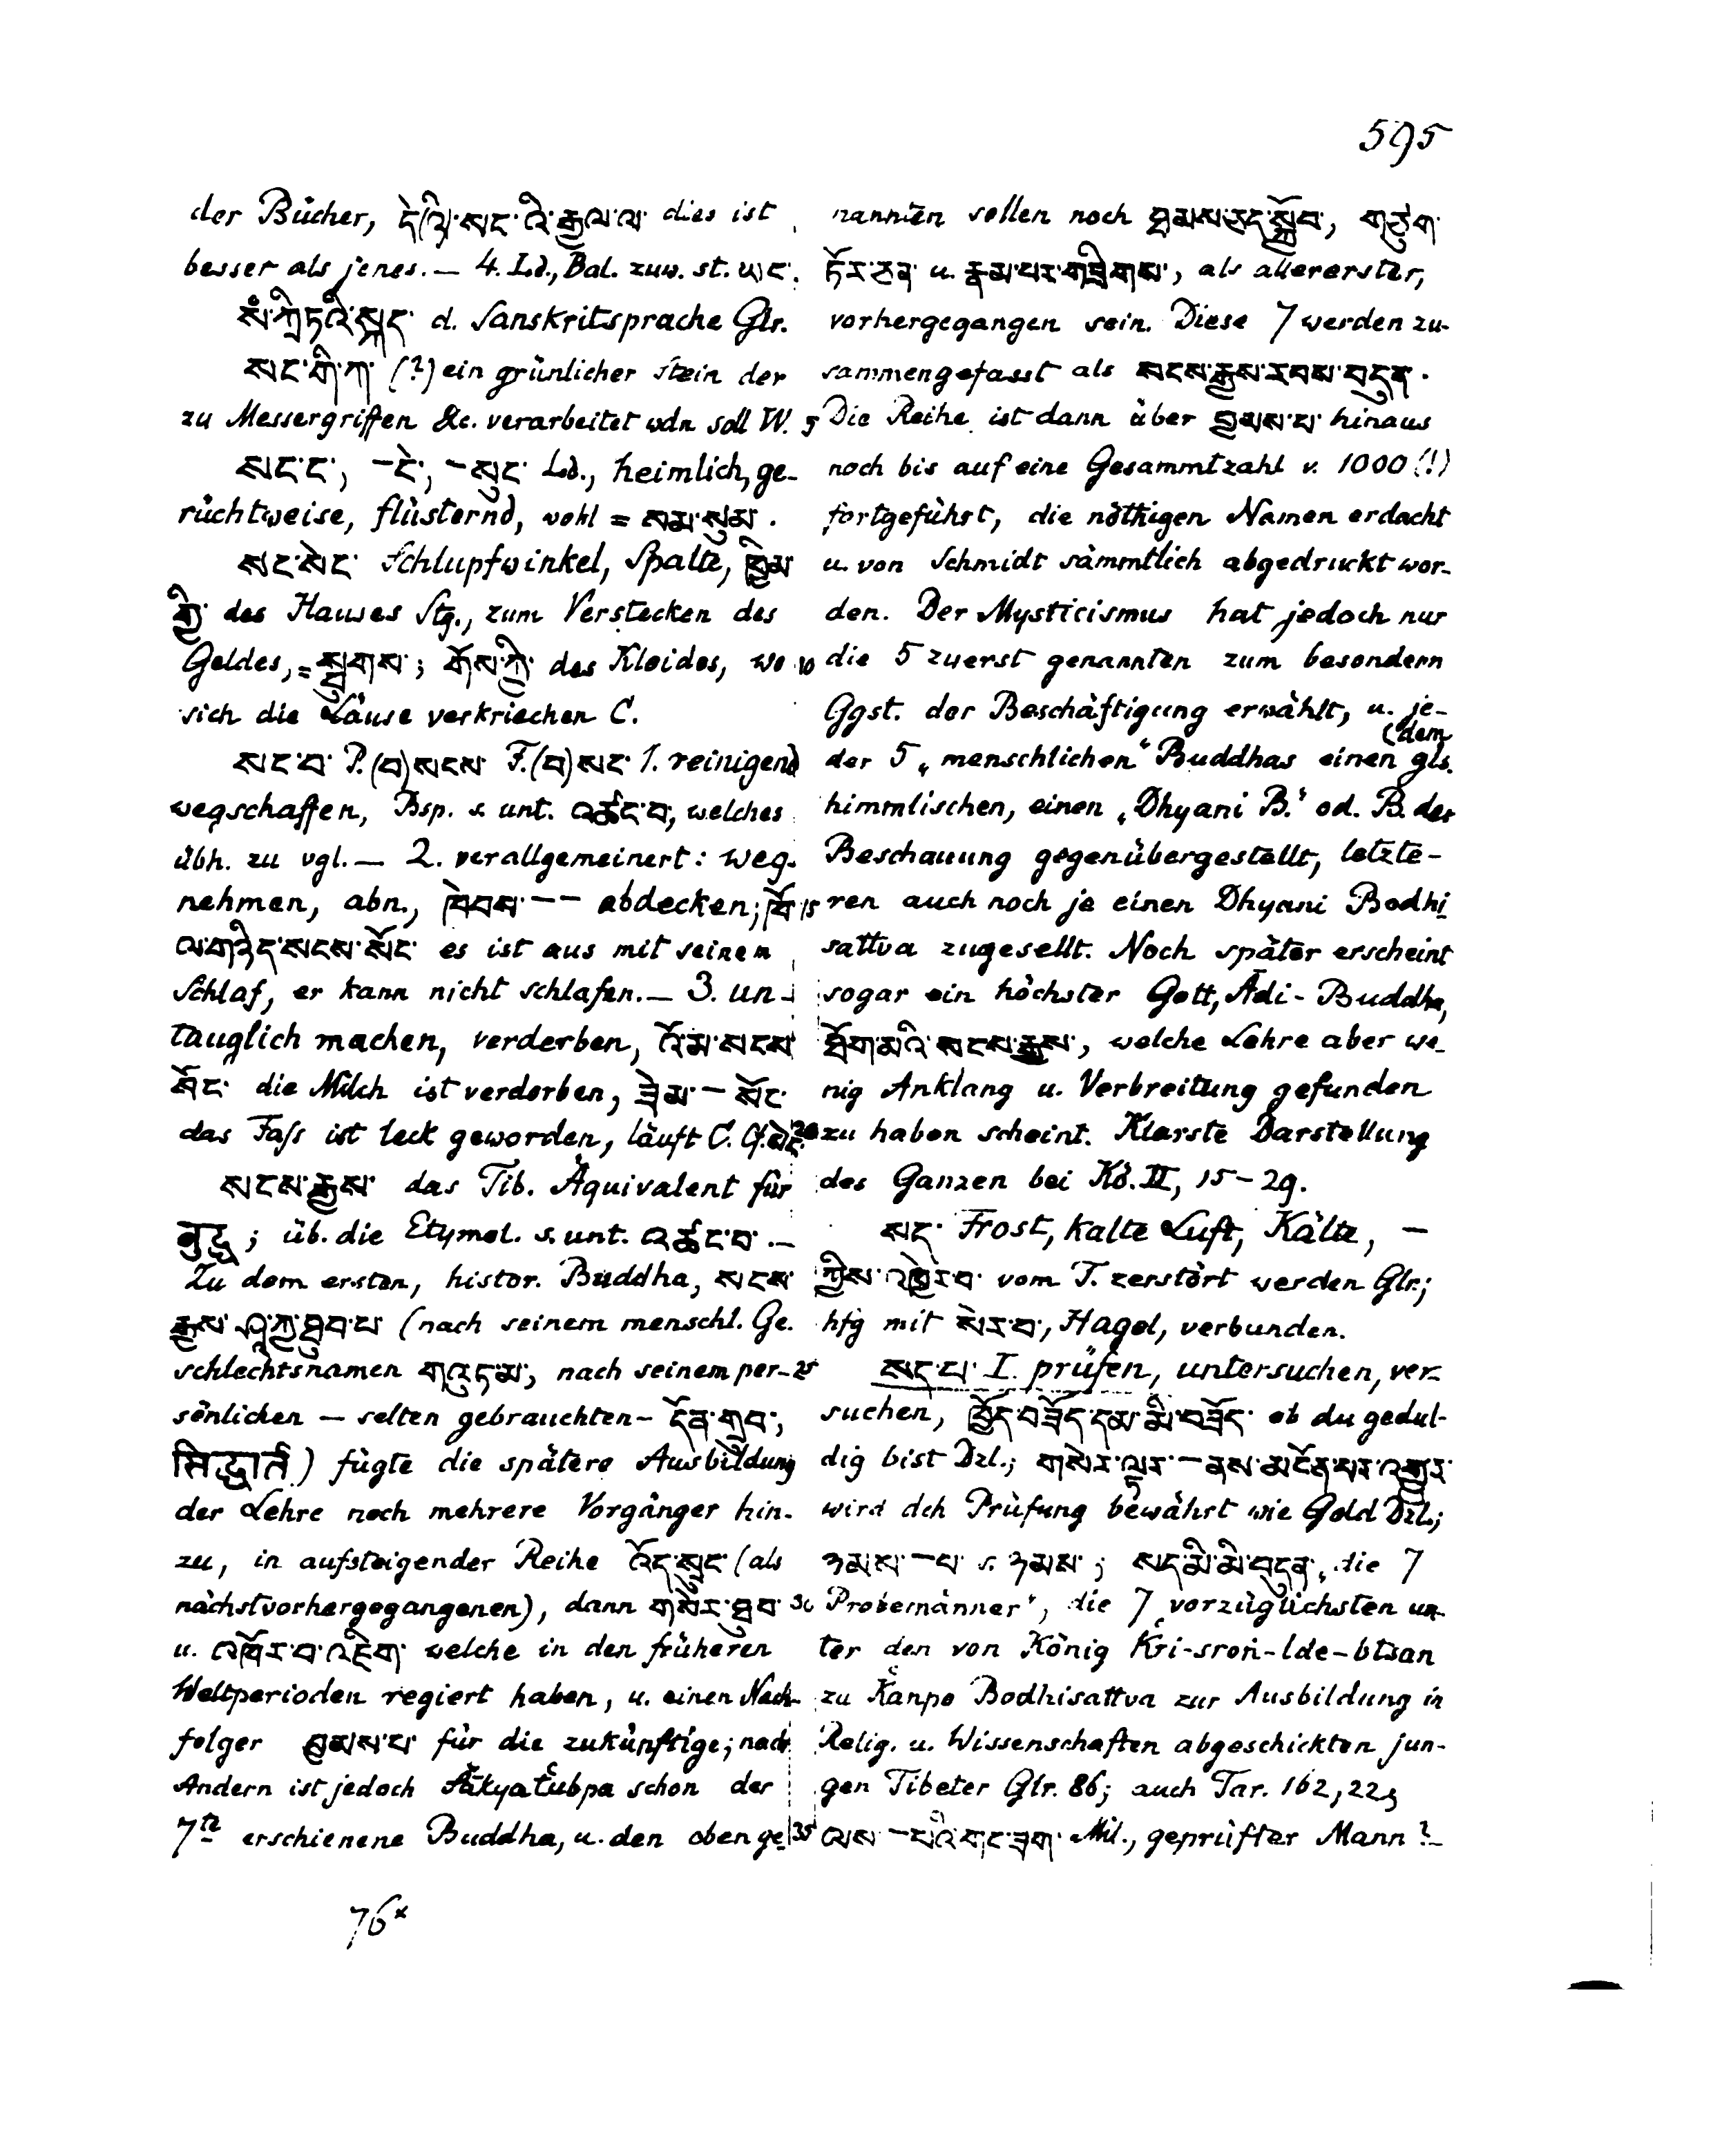 595
der Bücher, དེ(འི)་སང་འི་རྒྱལ་ལ་ dies ist
besser als jenes. — 4. Ld., Bal. zuw. st. ཡང་.
སཾ་ཀྲི་ཏའི་སྐད་ d. Sanskritsprache Glr.
སང་གི་ཀ་ (?) ein grünlicher Stein der
zu Messergriffen &c. verarbeitet wdn soll W.
སང་ང་, –ངེ་, –སུང་ Ld., heimlich, ge-
rüchtweise, flüsternd, wohl = སམ་སུམ་.
སང་སེང་ Schlupfwinkel, Spalte, ཁྱིམ་
གྱི་ des Hauses Stg., zum Verstecken des
Geldes, = སྦུགས་; གོས་ཀྱི་ des Kleides, wo 10
sich die Läuse verkriechen C.
སང་བ་ P. (བ)སངས་ F. (བ)སང་ 1. reinigend
wegschaffen, Bsp. s. unt. འཚང་བ་, welches
übh. zu vgl. — 2. verallgemeinert: weg-
nehmen, abn., ཁེབས་ –– abdecken; ཁོ་ 15
ལ་གཉིད་སངས་སོང་ es ist aus mit seinem
Schlaf, er kann nicht schlafen. — 3. un-
tauglich machen, verderben, འོ་མ་སངས་
སོང་ die Milch ist verdorben, ཟེམ་ – སོང་
das Faſs ist leck geworden, läuft C. Cf. སེང་. 20
སངས་རྒྱས་ das Tib. Äquivalent für
बुद्ध; üb. die Etymol. s. unt. འཚང་བ་. —
Zu dem ersten, histor. Buddha, སངས་
རྒྱས་ཤཱ་ཀྱ་ཐུབ་པ་ (nach seinem menschl. Ge-
schlechtsnamen གཽ་ཏ་མ་, nach seinem per- 25
sönlichen — selten gebrauchten — དོན་གྲུབ་,
सिद्धार्त) fügte die spätere Ausbildung
der Lehre noch mehrere Vorgänger hin-
zu, in aufsteigender Reihe འོད་སྲུང་ (als
nächstvorhergegangenen), dann གསེར་ཐུབ་ 30
u. འཁོར་བ་འཇིག་ welche in den früheren
Weltperioden regiert haben, u. einen Nach-
folger བྱམས་པ་ für die zukünftige; nach
Andern ist jedoch Šākyatʽubpa schon der
7te erschienene Buddha, u. den oben ge- 35
nannten sollen noch ཐམས་ཅད་སྐྱོབ་, གཙུག་
ཏོར་ཅན་ u. རྣམ་པར་གཟིགས་, als allererster,
vorhergegangen sein. Diese 7 werden zu-
sammengefasst als སངས་རྒྱས་རབས་བདུན་.
5 Die Reihe ist dann über བྱམས་པ་ hinaus
noch bis auf eine Gesammtzahl v. 1000 (!)
fortgeführt, die nöthigen Namen erdacht
u. von Schmidt sämmtlich abgedruckt wor-
den. Der Mysticismus hat jedoch nur
die 5 zuerst genannten zum besondern
Ggst. der Beschäftigung erwählt, u. je-
(dem
der 5 „menschlichen“ Buddhas einen gls.
himmlischen, einen „Dhyani B.“ od. B. der
Beschauung gegenübergestellt, letzte-
ren auch noch je einen Dhyani Bodhi
sattva zugesellt. Noch später erscheint
sogar ein höchster Gott, Ādi-Buddha,
ཐོག་མའི་སངས་རྒྱས་, welche Lehre aber we-
nig Anklang u. Verbreitung gefunden
zu haben scheint. Klarste Darstellung
des Ganzen bei Kö. II, 15–29.
སད་ Frost, kalte Luft, Kälte, —
ཀྱིས་འཁྱེར་བ་ vom F. zerstört werden Glr.;
hfg mit སེར་བ་, Hagel, verbunden.
སད་པ་ I. prüfen, untersuchen, ver-
suchen, ཁྱོད་བཟོད་དམ་མི་བཟོད་ ob du gedul-
dig bist Dzl.; གསེར་ལྟར་ – ནས་མངོན་པར་འགྱུར་
wird dch Prüfung bewährt wie Gold Dzl.;
ཉམས་ – པ་ s. ཉམས་; སད་མི་མི་བདུན་ „die 7
Probemänner“, die 7 vorzüglichsten un-
ter den von König Kʽri-sroṅ-lde-btsan
zu Kʽanpo Bodhisattva zur Ausbildung in
Relig. u. Wissenschaften abgeschickten jun-
gen Tibeter Glr. 86; auch Tar. 162, 22;
ལས་ – པའི་གང་ཟག་ Mil., geprüfter Mann? —
76*